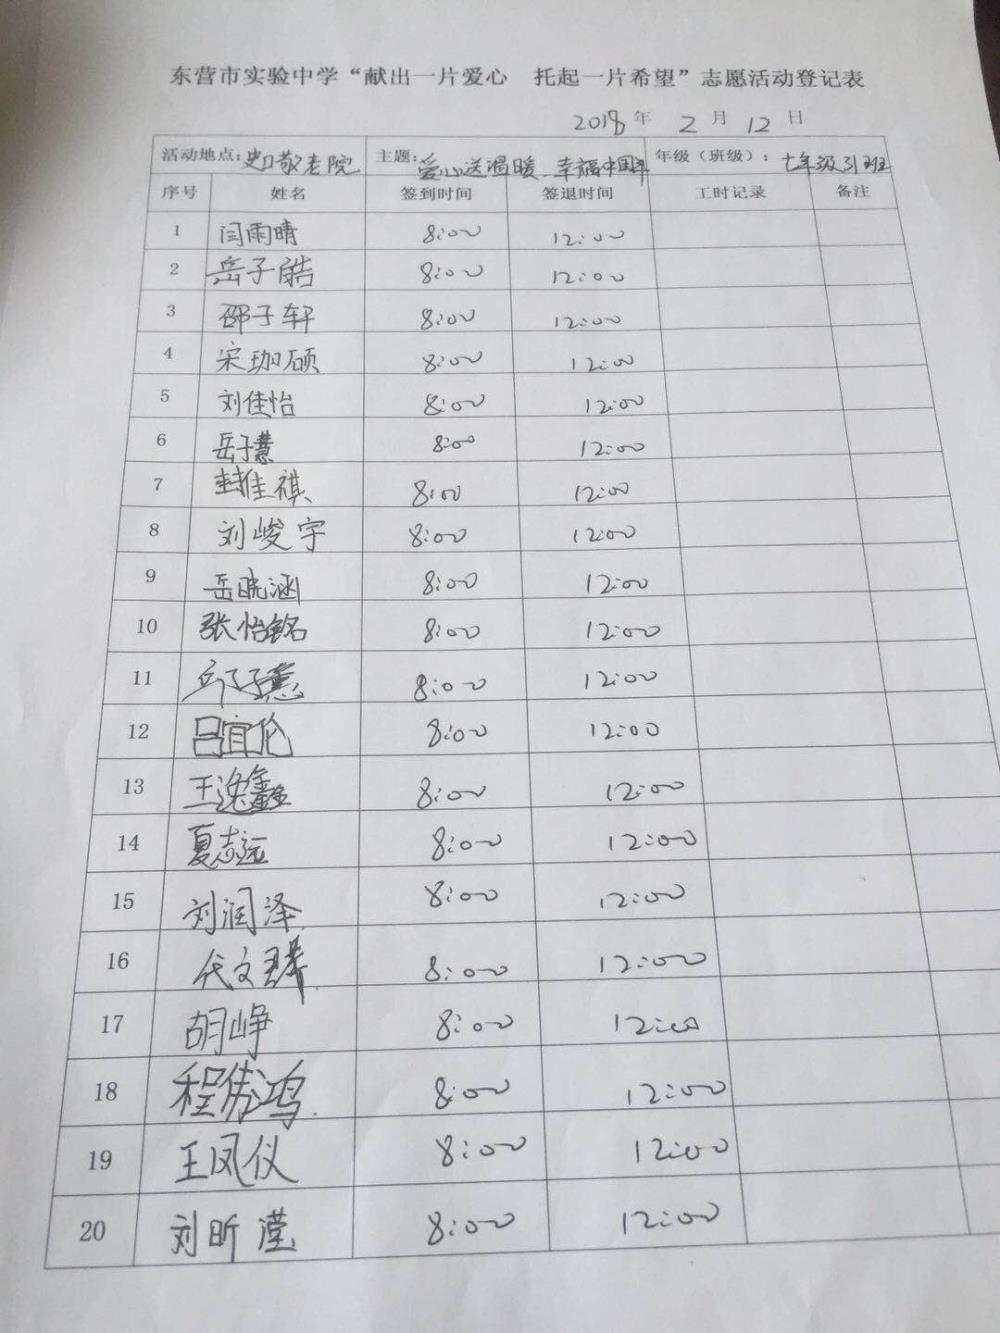 东营市实验中学“献出一片爱心 托起一片希望”志愿活动登记表
2018年 2月 12日
活动地点:史口敬老院 主题:爱心送温暖、幸福中国年 年级（班级）：七年级31班
序号 姓名 签到时间 签退时间 工时记录 备注
1 闫雨晴 8:00 12:00
2 岳子皓 8:00 12:00
3 邵子轩 8:00 12:00
4 宋珈硕 8:00 12:00
5 刘佳怡 8:00 12:00
6 岳子慧 8:00 12:00
7 封佳祺 8:00 12:00
8 刘峻宇 8:00 12:00
9 岳晓涵 8:00 12:00
10 张怡铭 8:00 12:00
11 邱子慧 8:00 12:00
12 吕宜伦 8:00 12:00
13 王逸鑫 8:00 12:00
14 夏志远 8:00 12:00
15 刘润泽 8:00 12:00
16 代文 8:00 12:00
17 胡峥 8:00 12:00
18 程隽鸿 8:00 12:00
19 王凤仪 8:00 12:00
20 刘昕滢 8:00 12:00